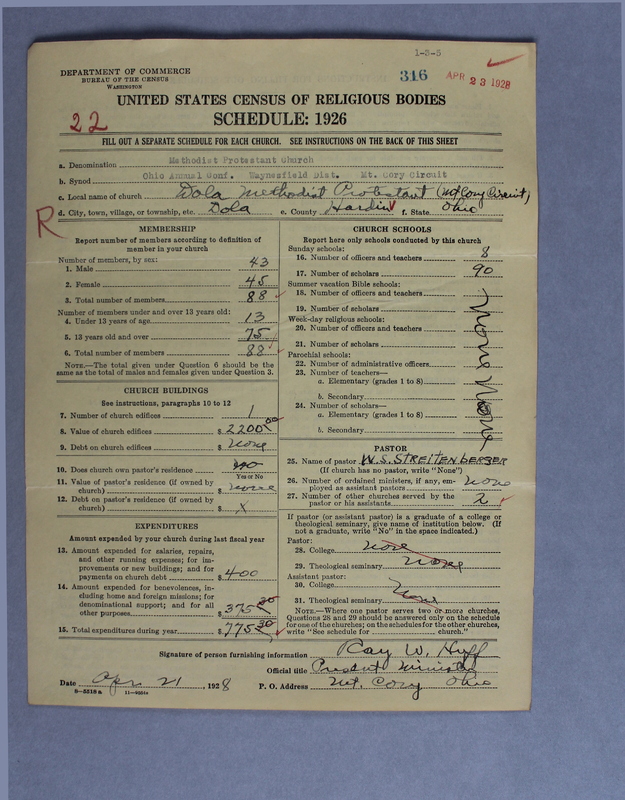 1-3-5
DEPARTMENT OF COMMERCE
BUREAU OF THE CENSUS
WASHINGTON
316
APR 23 1928
UNITED STATES CENSUS OF RELIGIOUS BODIES
SCHEDULE: 1926
22
FILL OUT A SEPARATE SCHEDULE FOR EACH CHURCH. SEE INSTRUCTIONS ON THE BACK OF THIS SHEET
a. Denomination Methodist Protestant Church
b. Synod Ohio Annual Conf. Waynesfield Dist. Mt. Cory Circuit
c. Local name of church Dola Methodist Protestant (Mt Cory Circuit)
R
d. City, town, village, or township, etc. Dola e. County Hardin f. State Ohio
MEMBERSHIP
Report number of members according to definition of
member in your church
Number of members, by sex:
1. Male 43
2. Female 45
3. Total number of members 88
Number of members under and over 13 years old:
4. Under 13 years of age 13
5. 13 years old and over 75
6. Total number of members 88
NOTE.—The total given under Question 6 should be
the same as the total of males and females given under Question 3.
CHURCH BUILDINGS
See instructions, paragraphs 10 to 12
7. Number of church edifices 1
8. Value of church edifices $ 2200 00
9. Debt on church edifices $ None
10. Does church own pastor's residence no
Yes or No
11. Value of pastor's residence (if owned by
church) $ none
12. Debt on pastor's residence (if owned by
church) $ X
EXPENDITURES
Amount expended by church during last fiscal year
13. Amount expended for salaries, repairs,
and other running expenses; for im-
provements or new buildings; and for
payments on church debt $ 400
14. Amount expended for benevolences, in-
cluding home and foreign missions; for
denominational support; and for all
other purposes $ 375 30
15. Total expenditures during year $ 775 30
CHURCH SCHOOLS
Report here only schools conducted by this church
Sunday schools:
16. Number of officers and teachers 8
17. Number of scholars 90
Summer vacation Bible schools:
18. Number of officers and teachers
19. Number of scholars
Week-day religious schools:
20. Number of officers and teachers
21. Number of scholars
Parochial schools:
22. Number of administrative officers
23. Number of teachers—
a. Elementary (grades 1 to 8)
b. Secondary
24. Number of scholars—
a. Elementary (grades 1 to 8)
b. Secondary
None None
PASTOR
25. Name of pastor W. S. STREITENBERGER
(If church has no pastor, write "None")
26. Number of ordained ministers, if any, em-
ployed as assistant pastors none
27. Number of other churches served by the
pastor or his assistants 2
If pastor (or assistant pastor) is a graduate of a college or
theological seminary, give name of institution below. (If
not a graduate, write "No" in the space indicated.)
Pastor:
28. College none
29. Theological seminary none
Assistant pastor:
30. College
31. Theological seminary None
NOTE.—Where one pastor serves two or more churches,
Questions 28 and 29 should be answered only on the schedule
for one of the churches; on the schedules for the other churches,
write "See schedule for church."
Signature of person furnishing information Ray W. Huff
Official title Present Minister
Date Apr 21, 1928 P. O. Address Mt. Cory Ohio
8-5318a 11-9204a